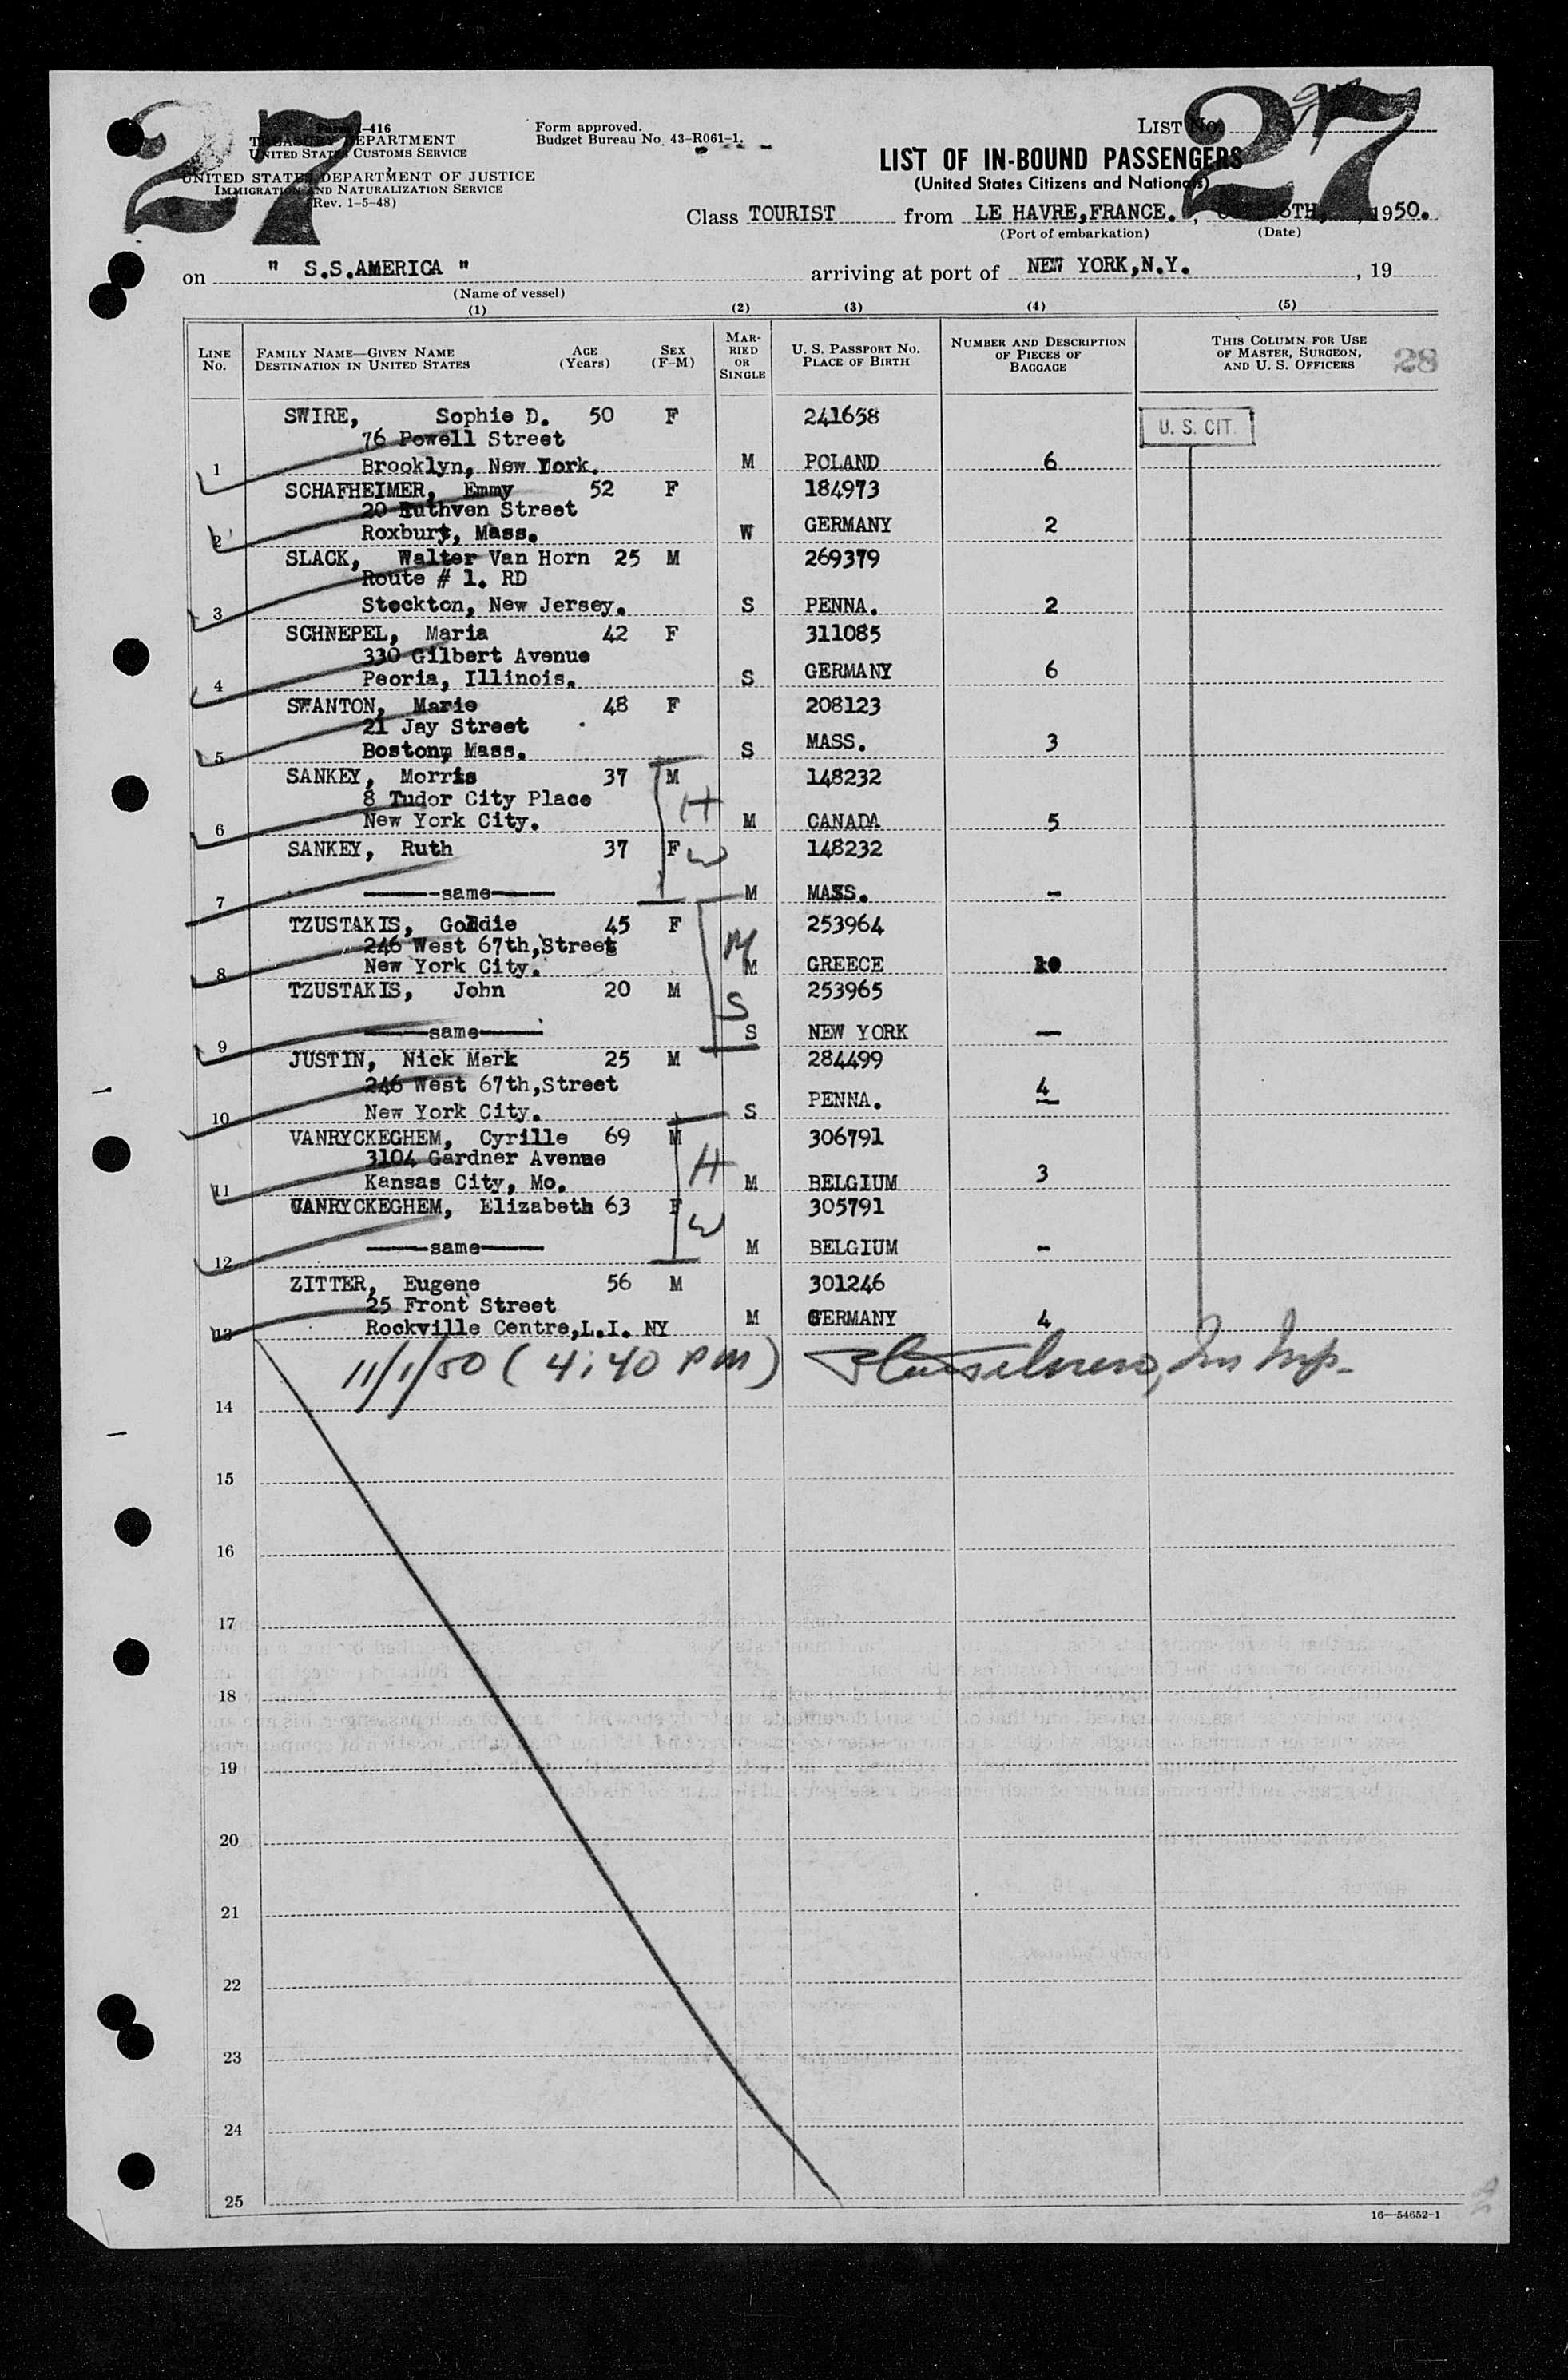 27
27
Form I-416
TREASURY DEPARTMENT
UNITED STATES CUSTOMS SERVICE
UNITED STATES DEPARTMENT OF JUSTICE
IMMIGRATION AND NATURALIZATION SERVICE
(Rev. 1-5-48)
Form approved.
Budget Bureau No. 43-R061-1.
LIST No.
LIST OF IN-BOUND PASSENGERS
(United States Citizens and Nationals)
Class TOURIST from LE HAVRE,FRANCE. , 1950.
(Port of embarkation) (Date)
on " S.S.AMERICA " arriving at port of NEW YORK,N.Y. , 19
(Name of vessel)
(1) (2) (3) (4) (5)
LINE No. FAMILY NAME—GIVEN NAME DESTINATION IN UNITED STATES AGE (Years) SEX (F-M) MARRIED OR SINGLE U. S. PASSPORT NO. PLACE OF BIRTH NUMBER AND DESCRIPTION OF PIECES OF BAGGAGE THIS COLUMN FOR USE OF MASTER, SURGEON, AND U. S. OFFICERS 28
SWIRE, Sophie D. 50 F 241658 U. S. CIT.
76 Powell Street
1 Brooklyn, New York. M POLAND 6
SCHAFHEIMER, Emmy 52 F 184973
20 Ruthven Street
2 Roxbury, Mass. W GERMANY 2
SLACK, Walter Van Horn 25 M 269379
Route # 1. RD
3 Stockton, New Jersey. S PENNA. 2
SCHNEPEL, Maria 42 F 311085
330 Gilbert Avenue
4 Peoria, Illinois. S GERMANY 6
SWANTON, Marie 48 F 208123
21 Jay Street
5 Boston, Mass. S MASS. 3
SANKEY, Morris 37 M 148232
8 Tudor City Place H
6 New York City. M CANADA 5
SANKEY, Ruth 37 F W 148232
7 ———same——— M MASS. -
TZUSTAKIS, Goldie 45 F 253964
246 West 67th,Street M
8 New York City. M GREECE 10
TZUSTAKIS, John 20 M S 253965
9 ———same——— S NEW YORK —
JUSTIN, Nick Mark 25 M 284499
246 West 67th,Street 4
10 New York City. S PENNA.
VANRYCKEGHEM, Cyrille 69 M 306791
3104 Gardner Avenue H
11 Kansas City, Mo. M BELGIUM 3
VANRYCKEGHEM, Elizabeth 63 F W 305791
12 ———same——— M BELGIUM -
ZITTER, Eugene 56 M 301246
25 Front Street
13 Rockville Centre,L.I. NY M GERMANY 4
11/1/50 ( 4:40 PM )
14
15
16
17
18
19
20
21
22
23
24
25
16—54652-1